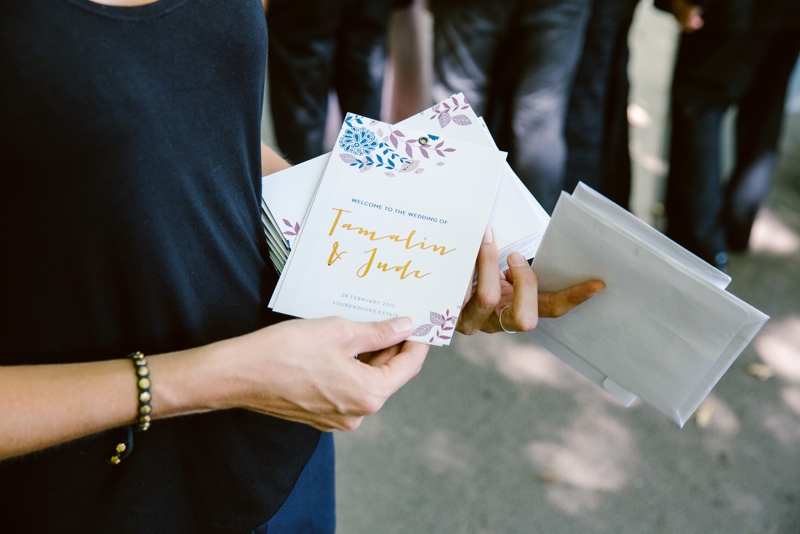 WELCOME TO THE WEDDING OF
Tamalin
& Jude
FEBRUARY 2015
LOURENSFORD ESTATE